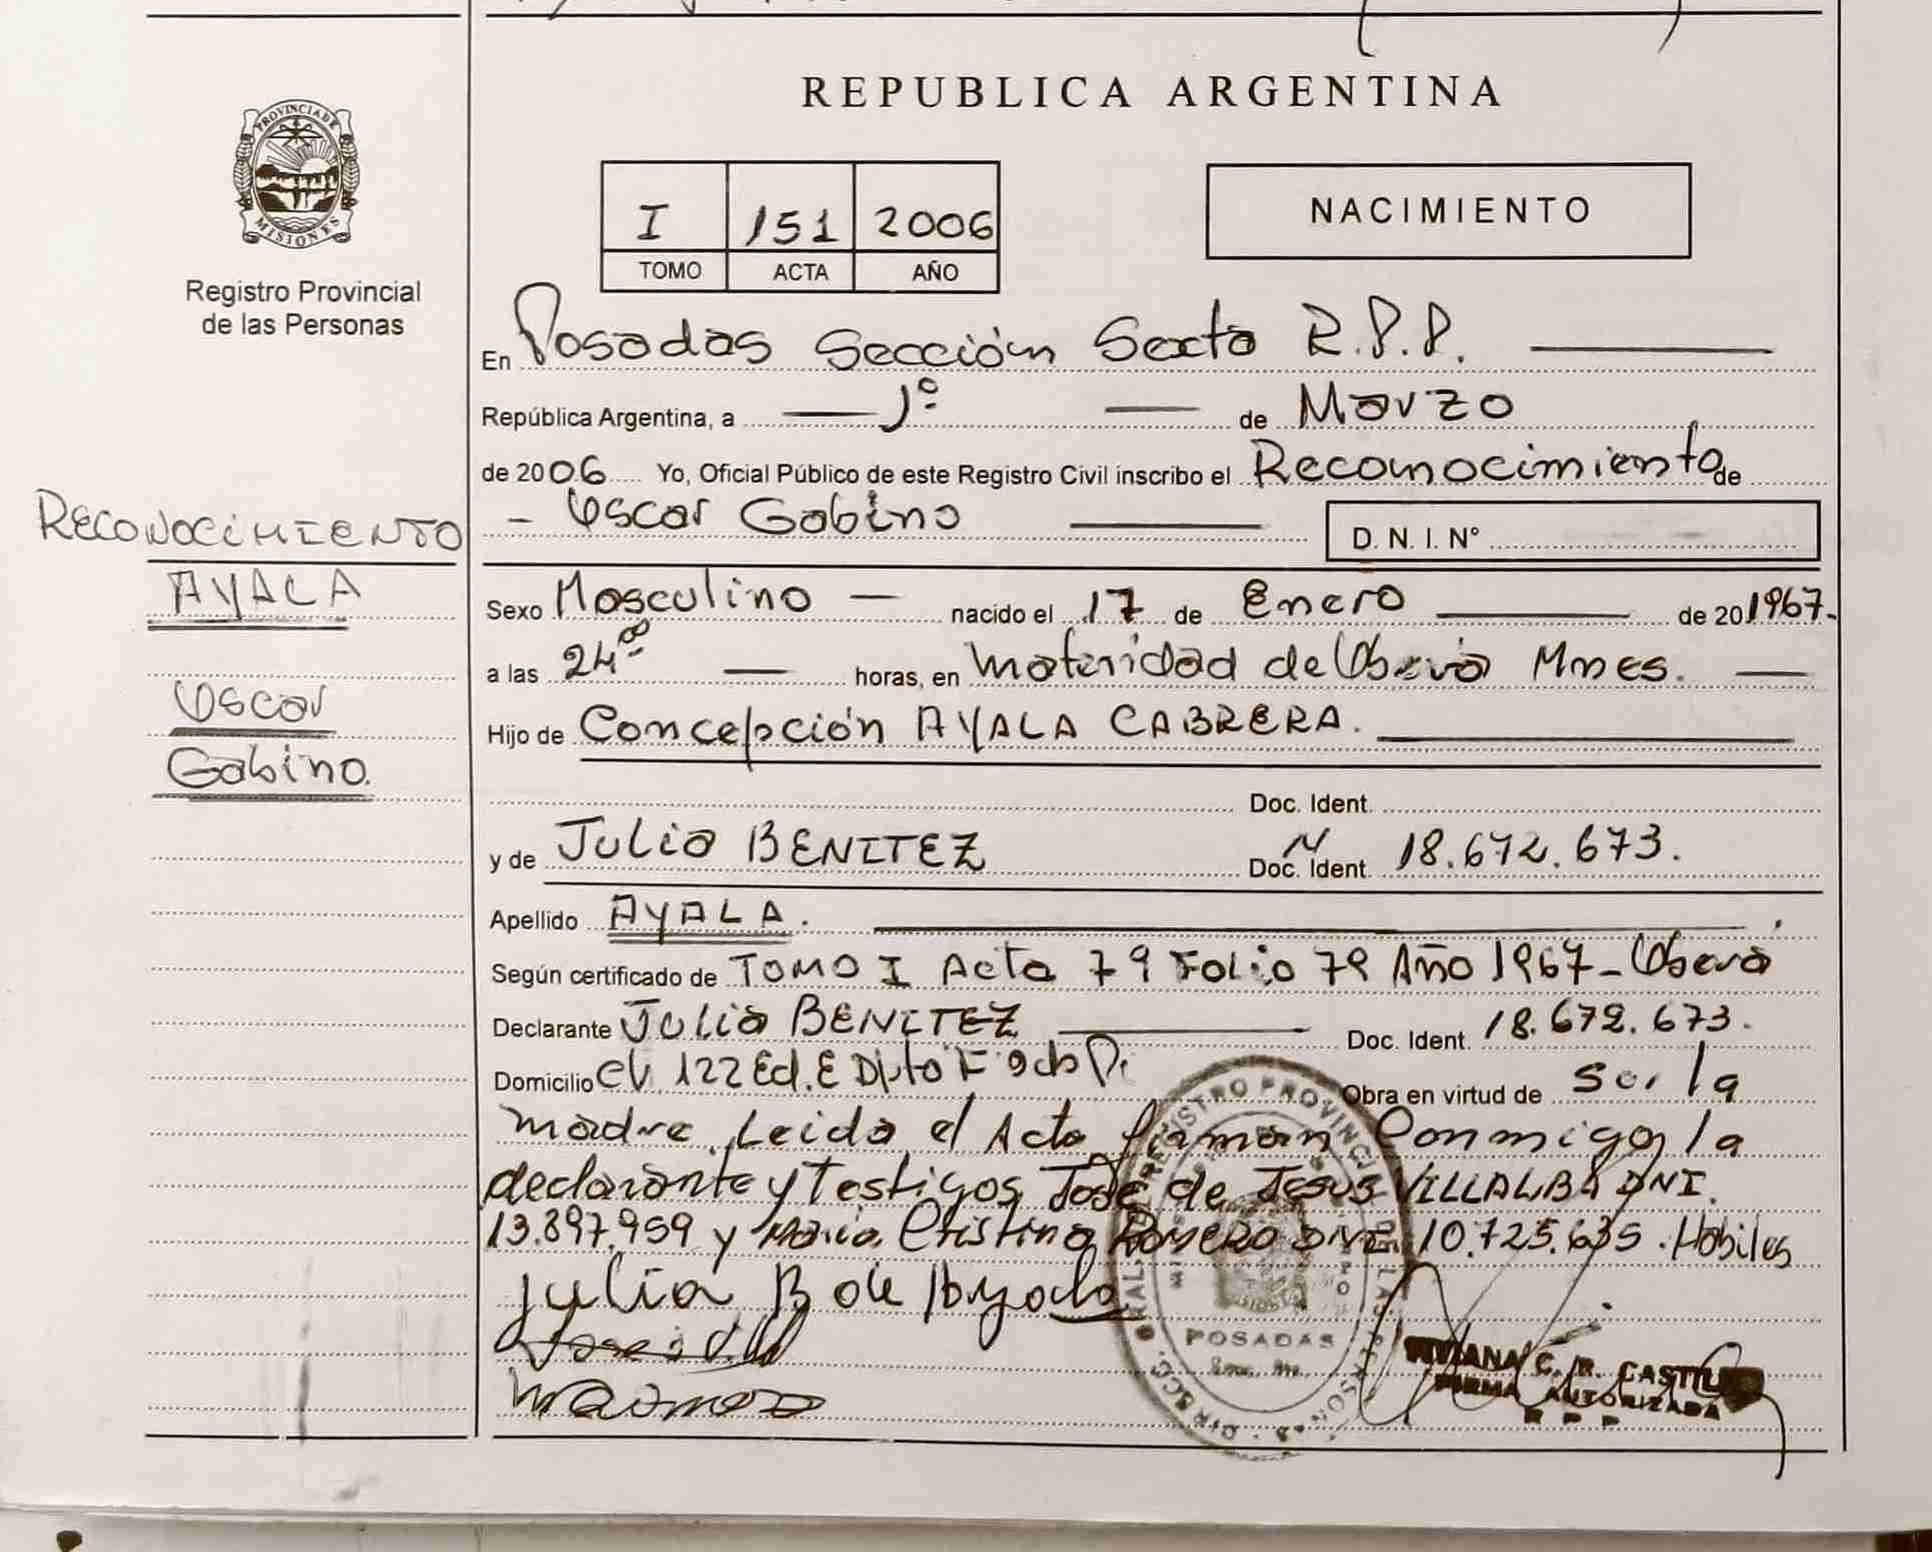 REPUBLICA ARGENTINA
PROVINCIA DE
MISIONES
Registro Provincial
de las Personas
I 151 2006
TOMO ACTA AÑO
NACIMIENTO
En Posadas Sección Sexta R.P.P.
República Argentina, a 1º de Marzo
de 2006 Yo, Oficial Público de este Registro Civil inscribo el Reconocimiento de
Oscar Gabino D. N. I. Nº
RECONOCIMIENTO
AYALA
Oscar
Gabino.
Sexo Masculino nacido el 17 de Enero de 20 1967-
a las 24 horas, en Maternidad de Oberá Mnes.
Hijo de Concepción AYALA CABRERA.
Doc. Ident.
y de Julia BENITEZ Doc. Ident. 18.672.673.
Apellido AYALA.
Según certificado de TOMO I Acta 79 Folio 79 Año 1967- Oberá
Declarante Julia BENITEZ Doc. Ident. 18.672.673.
Domicilio Ch. 122 Ed. E Dpto F Obra en virtud de ser la
madre. Leida el Acta firman Conmigo, la
declarante y Testigos José de Jesus VILLALBA DNI.
13.897.959 y Maria Cristina ROMERO DNI. 10.725.635. Habiles
Julia B de Ayala
REGISTRO PROVINCIAL DE LAS PERSONAS
POSADAS
VIVIANA C. R. CASTILLO
FIRMA AUTORIZADA
R P P